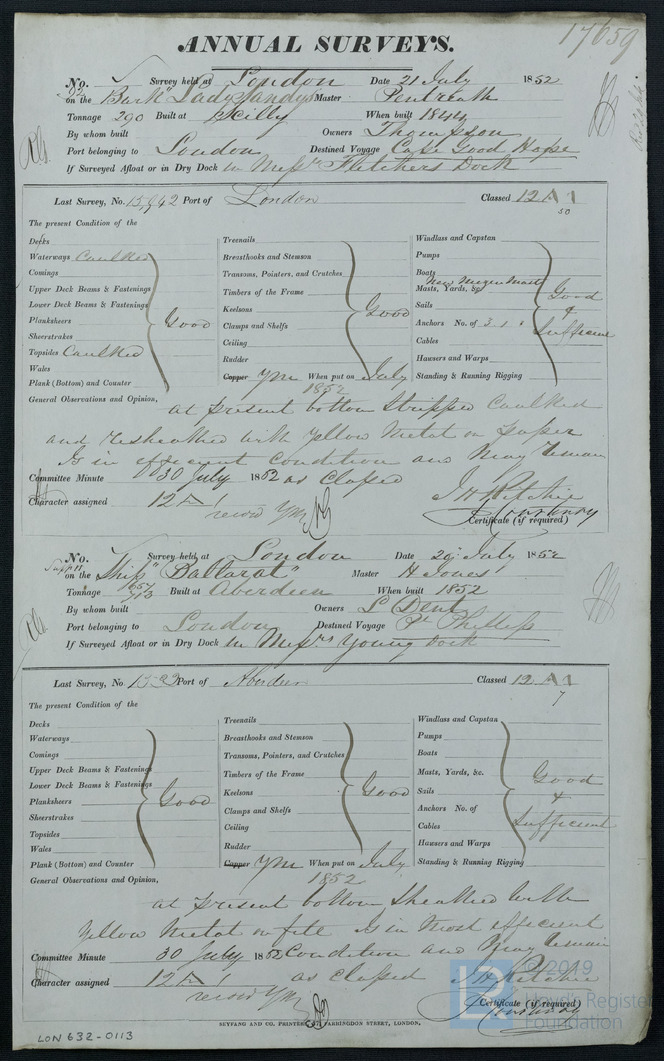 17659
ANNUAL SURVEYS.
No. Survey held at London Date 21 July 1852
on the Bark "Lady Sandys" Master Pentreath
Tonnage 290 Built at Scilly When built 1844
By whom built Owners Thompson
Port belonging to London Destined Voyage Cape Good Hope
If Surveyed Afloat or in Dry Dock in Messrs Fletchers Dock
Last Survey, No. 15942 Port of London Classed 12 A 1
50
The present Condition of the
Decks
Waterways Caulked
Comings
Upper Deck Beams & Fastenings
Lower Deck Beams & Fastenings
Planksheers
Sheerstrakes
Topsides Caulked
Wales
Plank (Bottom) and Counter
Good
Treenails
Breasthooks and Stemson
Transoms, Pointers, and Crutches
Timbers of the Frame
Keelsons
Clamps and Shelfs
Ceiling
Rudder
Copper YM When put on July
1852
Good
Windlass and Capstan
Pumps
Boats
New Mizen Mast
Masts, Yards, &c.
Sails
Anchors No. of 3. 1.
Cables
Hawsers and Warps
Standing & Running Rigging
Good
&
Sufficient
General Observations and Opinion,
at present bottom stripped caulked
and resheathed with yellow metal on paper
Is in efficient condition and may remain
Committee Minute 30 July 1852 as classed
Character assigned 12 A 1
record YM
J H Ritchie
J Courtenay
Certificate (if required)
No. Survey held at London Date 20 July 1852
on the Ship "Ballarat" Master H Jones
Tonnage 657 713 Built at Aberdeen When built 1852
By whom built Owners D Dent
Port belonging to London Destined Voyage Pt Phillip
If Surveyed Afloat or in Dry Dock in Messrs Young Dock
Last Survey, No. Port of Aberdeen Classed 12 A 1
7
The present Condition of the
Decks
Waterways
Comings
Upper Deck Beams & Fastenings
Lower Deck Beams & Fastenings
Planksheers
Sheerstrakes
Topsides
Wales
Plank (Bottom) and Counter
Good
Treenails
Breasthooks and Stemson
Transoms, Pointers, and Crutches
Timbers of the Frame
Keelsons
Clamps and Shelfs
Ceiling
Rudder
Copper YM When put on July
1852
Good
Windlass and Capstan
Pumps
Boats
Masts, Yards, &c.
Sails
Anchors No. of
Cables
Hawsers and Warps
Standing & Running Rigging
Good
&
Sufficient
General Observations and Opinion,
at present bottom sheathed with
yellow metal on felt Is in most efficient
Committee Minute 30 July 1852 Condition and may remain
Character assigned 12 A 1 as classed
record YM
J H Ritchie
J Courtenay
Certificate (if required)
SEYFANG AND CO. PRINTERS, FARRINGDON STREET, LONDON,
LON 632-0113
© 2019
Lloyd's Register
Foundation